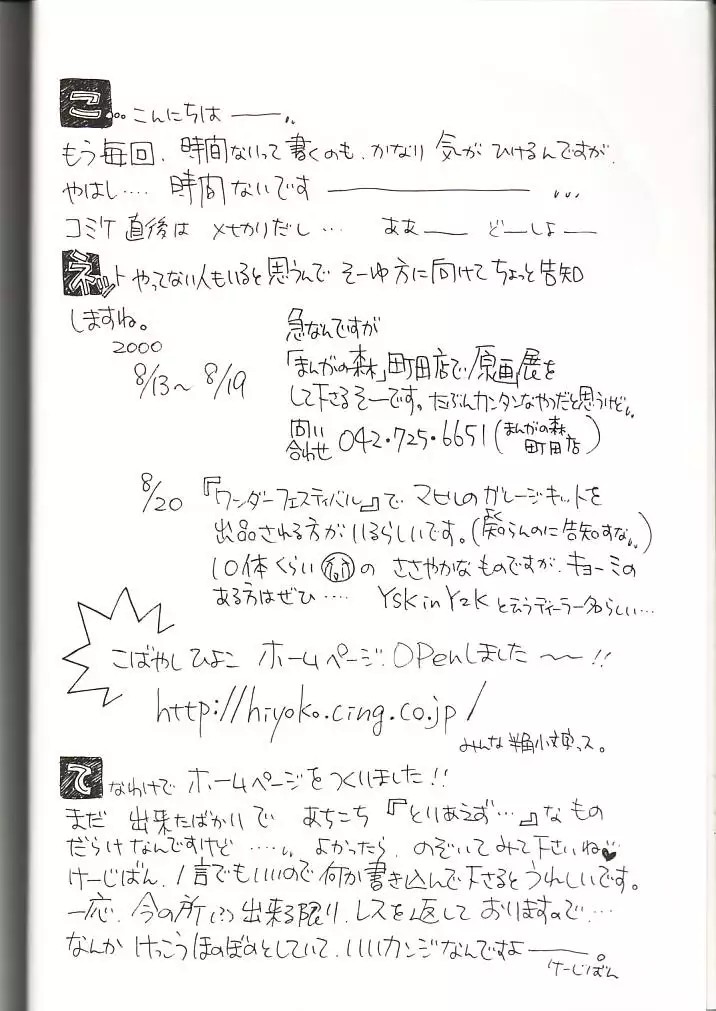 こ…こんにちは――..
もう毎回、時間ないって書くのも、かなり気がひけるんですが、
やはし…. 時間ないです――――…
コミケ直後は メせかりだし… ああ―― どーしよ―
ネット やってない人もいると思うんで そーゆ方に向けてちょっと告知
しますね。
2000
8/13〜8/19
急なんですが
「まんがの森」町田店で「原画」展を
して下さるそーです。たぶんカンタンなやつだと思うけど..
問い合わせ 042・725・6651(まんがの森町田店)
8/20
『ワンダーフェスティバル』で マヒルのガレージキットを
出品される方がいるらしいです。(よく知らんのに告知すな..)
10体くらいの ささやかなものですが、キョーミの
ある方はぜひ…. YSK in Y2K と云うディーラー名らしい…
こばやしひよこ ホームページ OPenしました〜〜!!
http://hiyoko.cing.co.jp/
みんな半角小文字っス。
てなわけで ホームページをつくりました!!
まだ 出来たばかりで あちこち『とりあえず…』なもの
だらけなんですけど….., よかったら、のぞいてみて下さいね♥
けーじばん、1言でもいいので何か書き込んで下さるとうれしいです。
一応、今の所は出来る限り、レスを返しておりますので…
なんか けっこうほのぼのとしていて、いいカンジなんですよ――。
けーじばん